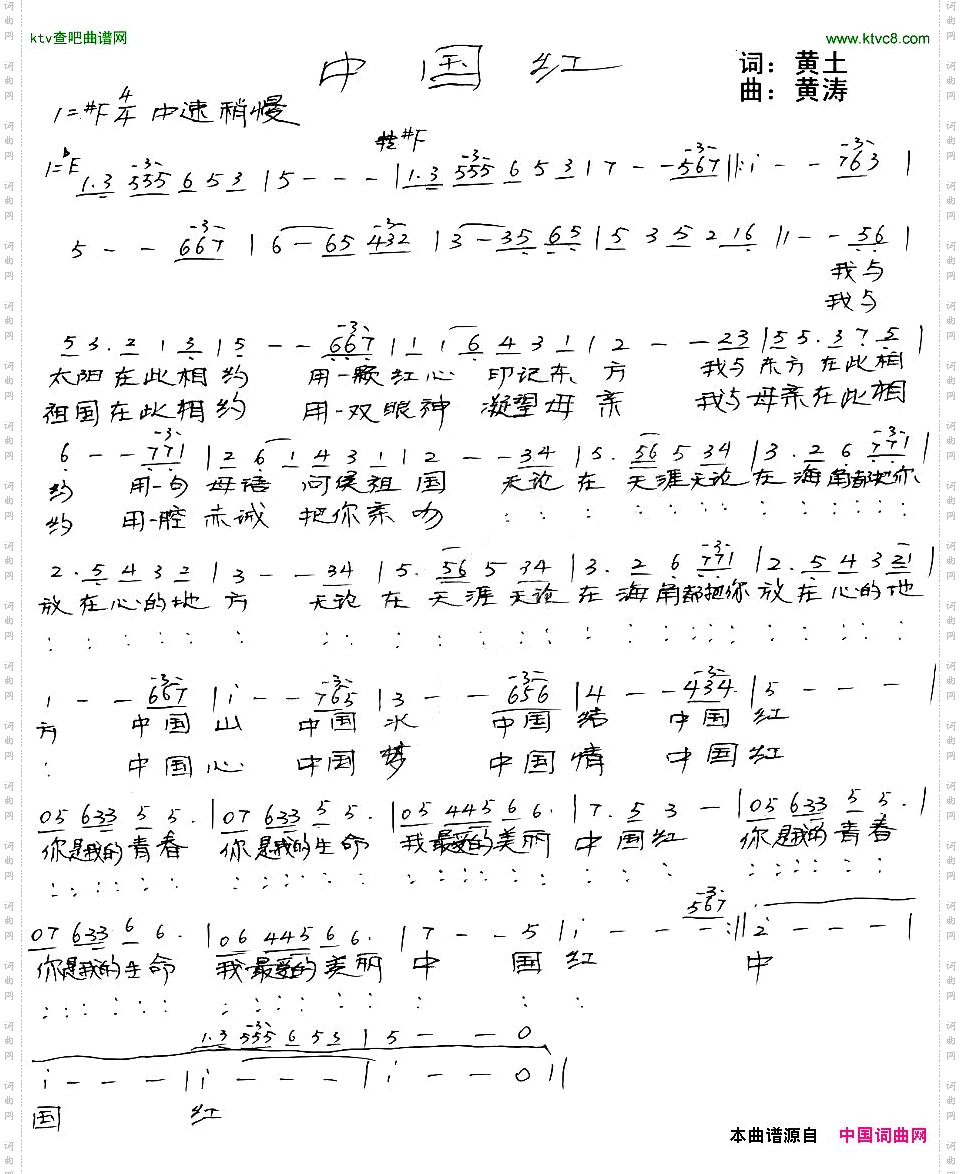 ktv查吧曲谱网
www.ktvc8.com
中国红
词：黄土
曲：黄涛
1=#F 4/4 中速稍慢
转#F
1=bE 1.3 555 6 5 3 | 5 - - - | 1.3 555 6 5 3 | 7 - - 567 ‖: i - - 763 |
5 - - 667 | 6 - 65 432 | 3 - 35 65 | 5 3 5 2 16 ‖ 1 - - 56 |
我与
我与
53. 2 1 3 | 5 - - 667 | 1 1 6 4 3 1 | 2 - - 23 | 55. 3 7 5 |
太阳在此相约 用一颗红心 印记东方 我与东方在此相
祖国在此相约 用一双眼神 凝望母亲 我与母亲在此相
6 - - 771 | 2 6 1 4 3 1 | 2 - - 34 | 5. 56 5 34 | 3. 2 6 771 |
约 用一句母语 问候祖国 无论在天涯无论在海角都把你
约 用一腔赤诚 把你亲吻
2. 5 4 3 2 | 3 - - 34 | 5. 56 5 34 | 3. 2 6 771 | 2. 5 4 3 21 |
放在心的地方 无论在天涯无论在海角都把你放在心的地
1 - - 667 | i - - 765 | 3 - - 656 | 4 - - 434 | 5 - - - |
方 中国山 中国水 中国结 中国红
: 中国心 中国梦 中国情 中国红
05 633 5 5. | 07 633 5 5. | 05 445 6 6. | 7. 5 3 - | 05 633 5 5. |
你是我的青春 你是我的生命 我最爱的美丽 中国红 你是我的青春
567
07 633 6 6. | 06 445 6 6. | 7 - - 5 | i - - - :‖ 2 - - - |
你是我的生命 我最爱的美丽 中国红 中
1.3 555 6 5 3 | 5 - - 0
i - - - | i - - - | i - - 0 ‖
国 红
本曲谱源自 中国词曲网